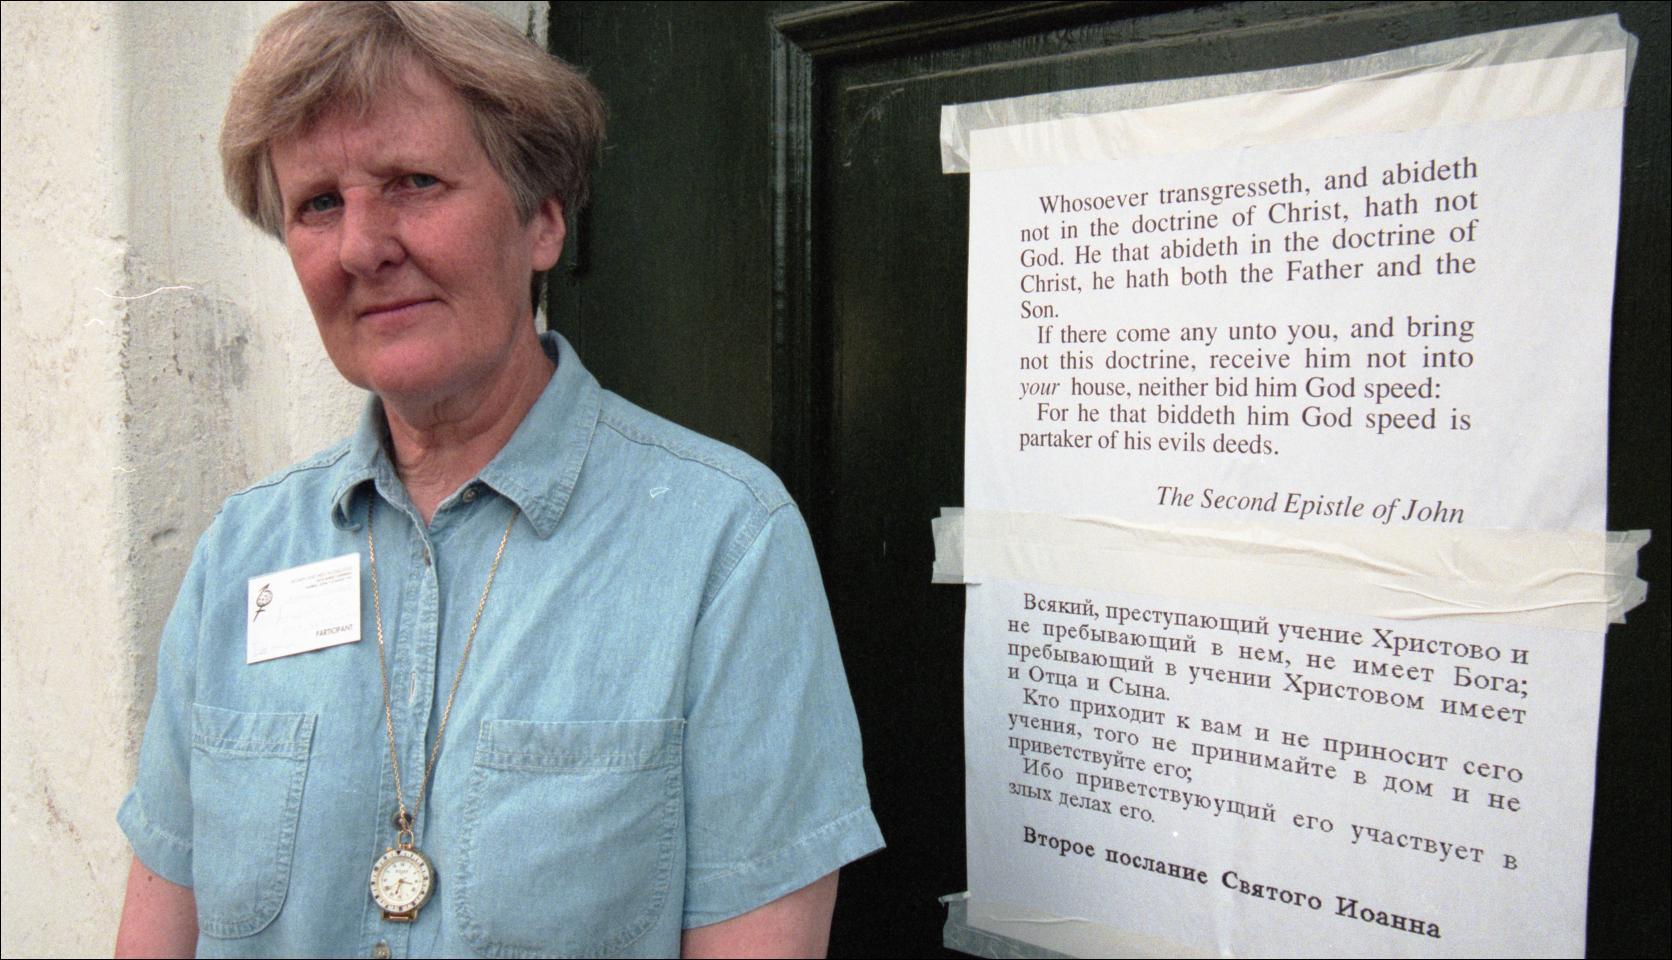 PARTICIPANT
Whosoever transgresseth, and abideth
not in the doctrine of Christ, hath not
God. He that abideth in the doctrine of
Christ, he hath both the Father and the
Son.
If there come any unto you, and bring
not this doctrine, receive him not into
your house, neither bid him God speed:
For he that biddeth him God speed is
partaker of his evils deeds.
The Second Epistle of John
Всякий, преступающий учение Христово и
не пребывающий в нем, не имеет Бога;
пребывающий в учении Христовом имеет
и Отца и Сына.
Кто приходит к вам и не приносит сего
учения, того не принимайте в дом и не
приветствуйте его;
Ибо приветствующий его участвует в
злых делах его.
Второе послание Святого Иоанна